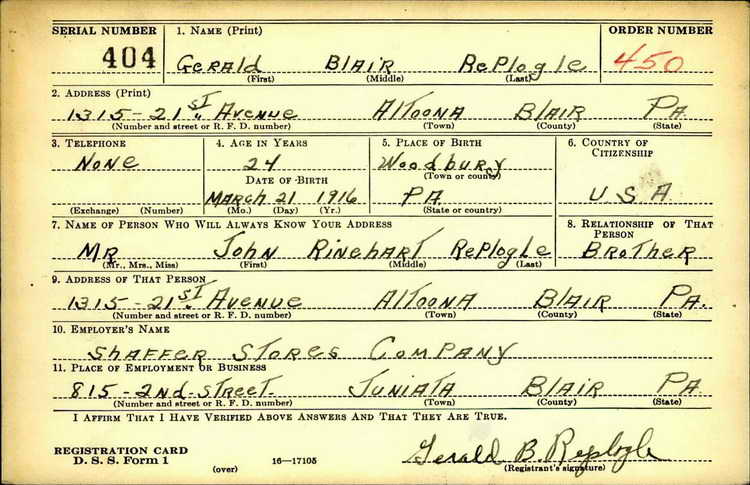 SERIAL NUMBER 1. NAME (Print) ORDER NUMBER
404 GERALD BLAIR REPLOGLE 450
(First) (Middle) (Last)
2. ADDRESS (Print)
1315-21ST AVENUE ALTOONA BLAIR PA
(Number and street or R. F. D. number) (Town) (County) (State)
3. TELEPHONE 4. AGE IN YEARS 5. PLACE OF BIRTH 6. COUNTRY OF CITIZENSHIP
NONE 24 WOODBURY
(Town or county)
DATE OF BIRTH
MARCH 21 1916 PA USA
(Exchange) (Number) (Mo.) (Day) (Yr.) (State or country)
7. NAME OF PERSON WHO WILL ALWAYS KNOW YOUR ADDRESS 8. RELATIONSHIP OF THAT PERSON
MR JOHN RINEHART REPLOGLE BROTHER
(Mr., Mrs., Miss) (First) (Middle) (Last)
9. ADDRESS OF THAT PERSON
1315-21ST AVENUE ALTOONA BLAIR PA.
(Number and street or R. F. D. number) (Town) (County) (State)
10. EMPLOYER'S NAME
SHAFFER STORES COMPANY
11. PLACE OF EMPLOYMENT OR BUSINESS
815-2ND-STREET. JUNIATA BLAIR PA
(Number and street or R. F. D. number) (Town) (County) (State)
I AFFIRM THAT I HAVE VERIFIED ABOVE ANSWERS AND THAT THEY ARE TRUE.
REGISTRATION CARD
D. S. S. Form 1 (over) 16—17105 Gerald B. Replogle
(Registrant's signature)